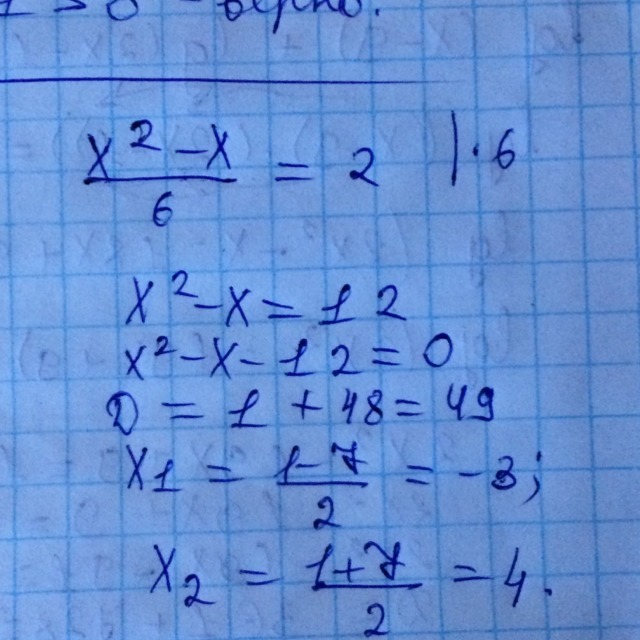 x² - x / 6 = 2 | · 6
x² - x = 12
x² - x - 12 = 0
D = 1 + 48 = 49
x₁ = 1 - 7 / 2 = -3;
x₂ = 1 + 7 / 2 = 4.